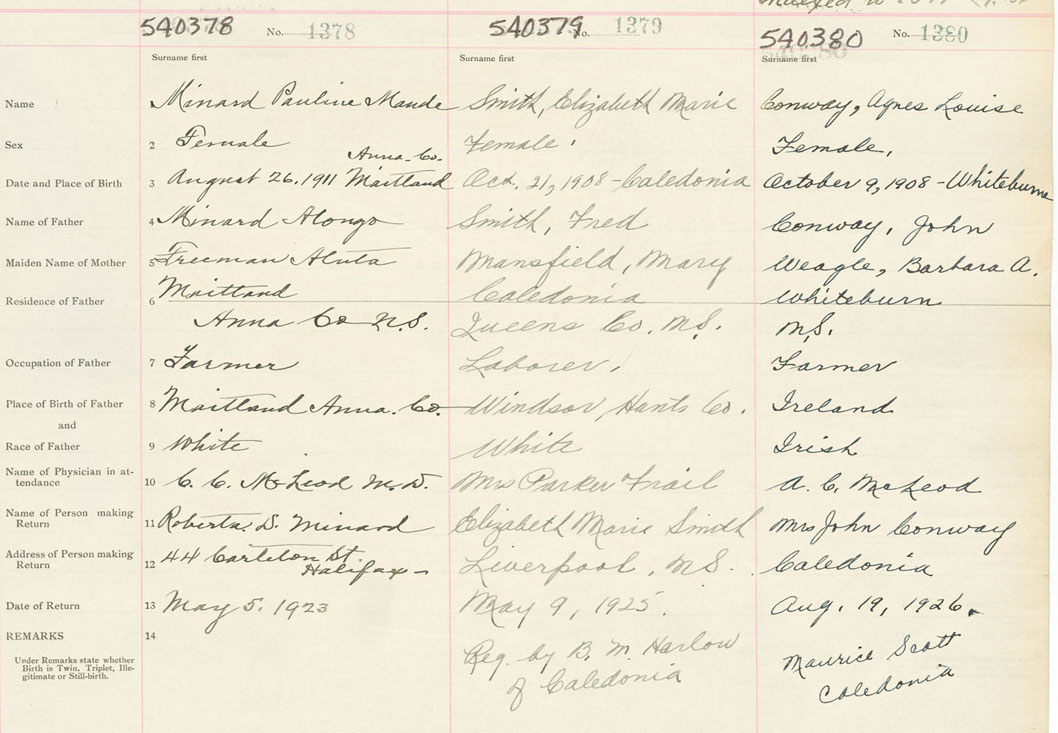 540378 No. 1378 540379 No. 1379 540380 No. 1380
Surname first Surname first Surname first
Name Minard Pauline Maude Smith, Elizabeth Marie Conway, Agnes Louise
Sex 2 Female Female. Female,
Anna. Co.
Date and Place of Birth 3 August 26, 1911 Maitland Oct. 21, 1908 - Caledonia October 9, 1908 - Whiteburne
Name of Father 4 Minard Alongo Smith, Fred Conway, John
Maiden Name of Mother 5 Freeman Aluta Mansfield, Mary Weagle, Barbara A.
Residence of Father 6 Maitland Caledonia Whiteburn
Anna Co N.S. Queens Co. N.S. N.S.
Occupation of Father 7 Farmer Laborer, Farmer
Place of Birth of Father 8 Maitland Anna. Co. Windsor, Hants Co. Ireland
and
Race of Father 9 White White Irish
Name of Physician in at-
tendance 10 C. C. McLeod M.D. Mrs Parker Frail A. C. McLeod
Name of Person making
Return 11 Roberta D. Minard Elizabeth Marie Smith Mrs John Conway
Address of Person making
Return 12 44 Carleton St. Halifax - Liverpool, N.S. Caledonia
Date of Return 13 May 5, 1923 May 9, 1925. Aug. 19, 1926.
REMARKS 14
Under Remarks state whether
Birth is Twin, Triplet, Ille-
gitimate or Still-birth.
Reg. by B. M. Harlow
of Caledonia
Maurice Scott
Caledonia